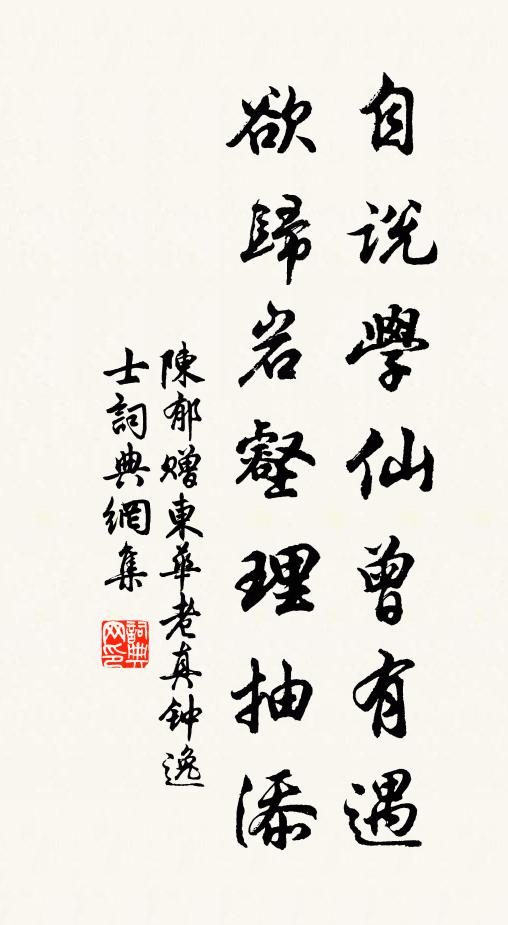 自説學仙曾有遇
欲歸岩壑理抽添
陳郁赠東華老真钟逸
士詞典網集
詞典网印